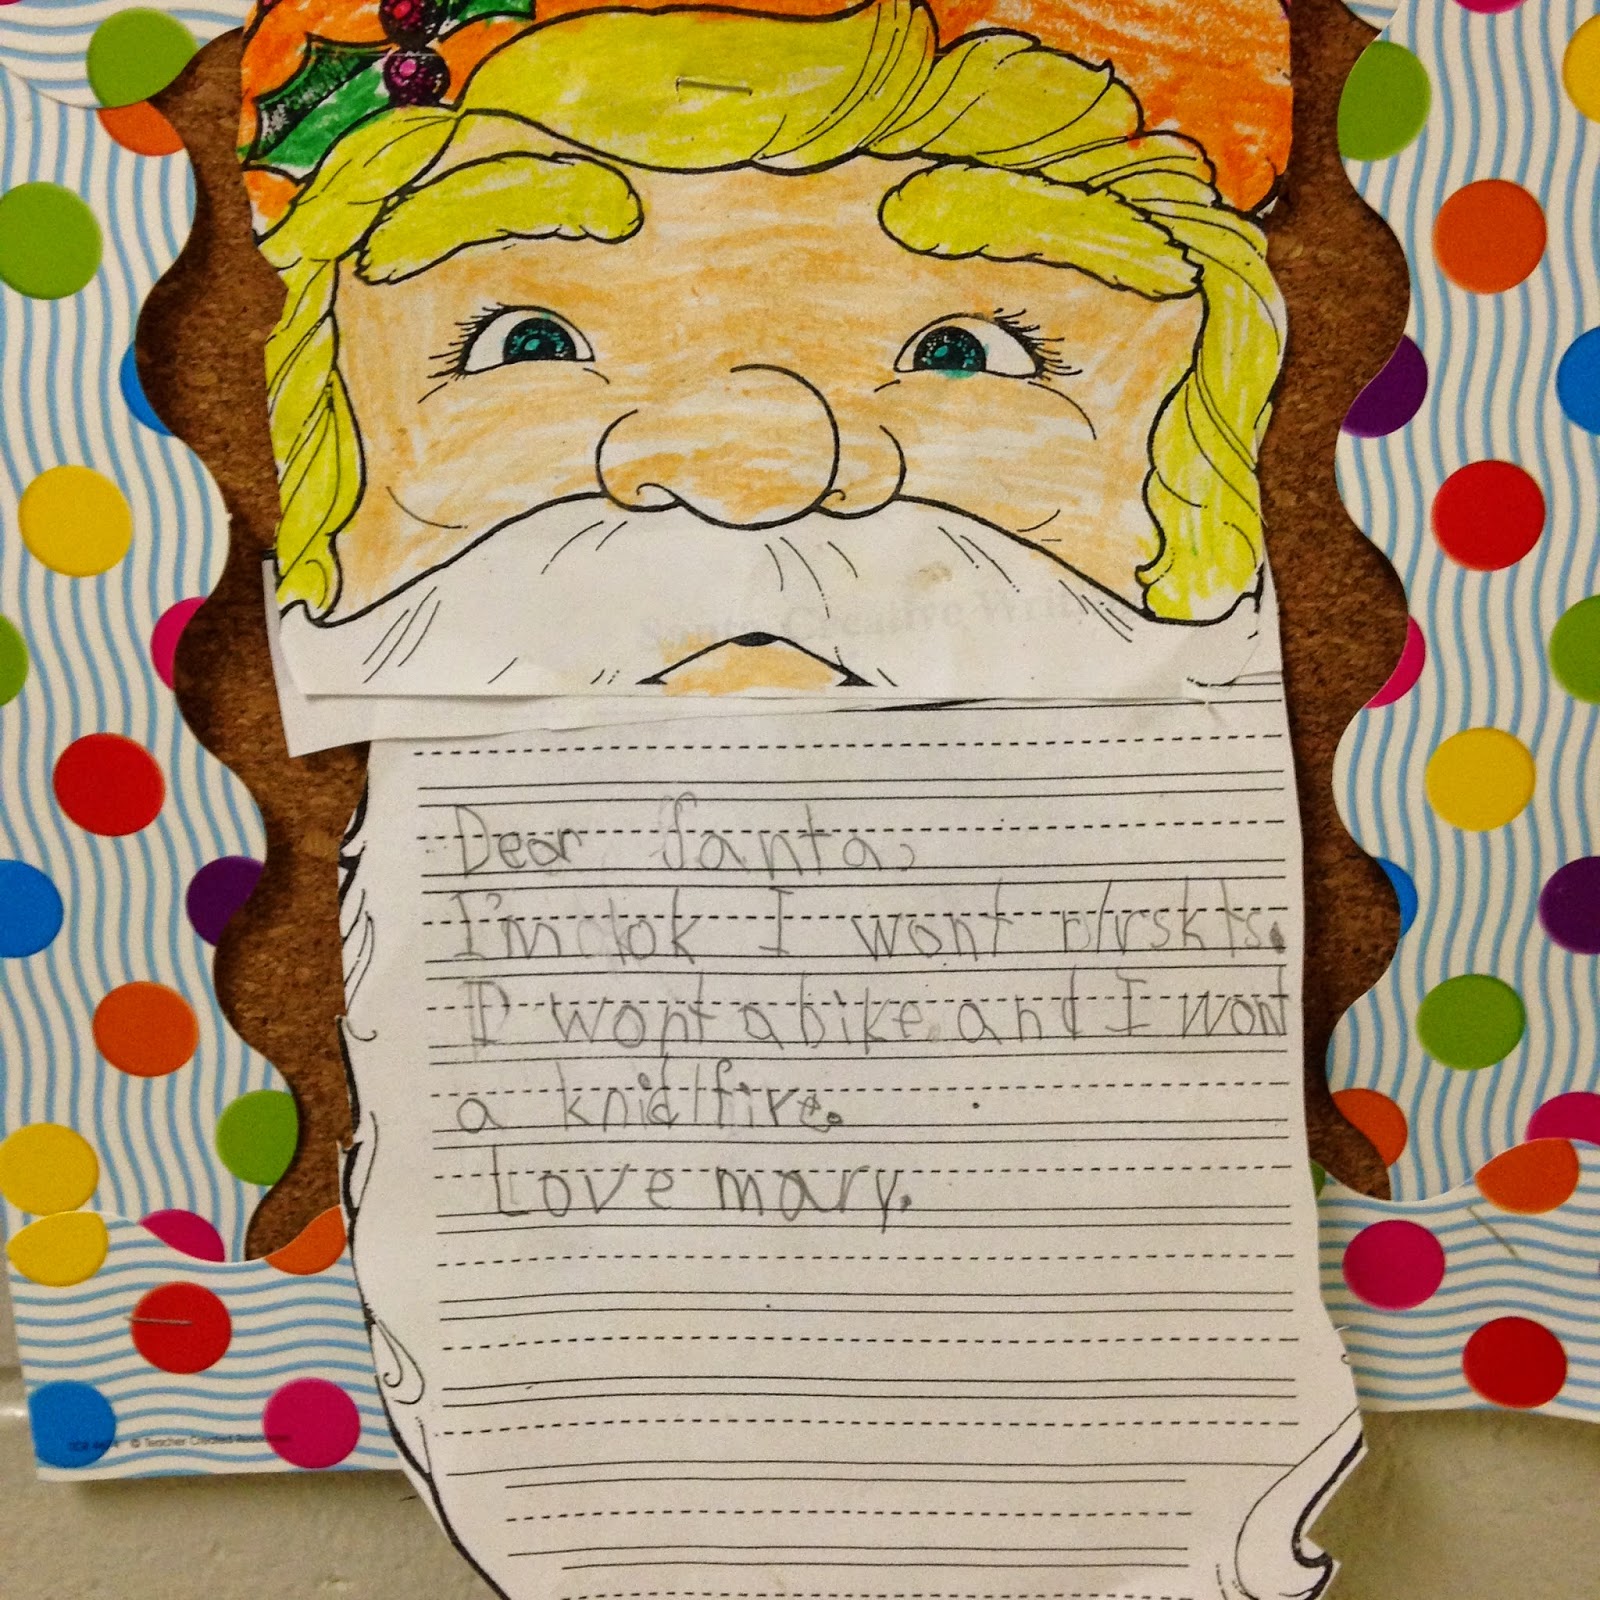 Santa Creative Writ
Dear Santa,
I'm ok I wont plrskts.
I wont a bike and I wont
a knidlfire.
Love mary.
© Teacher Created Resources